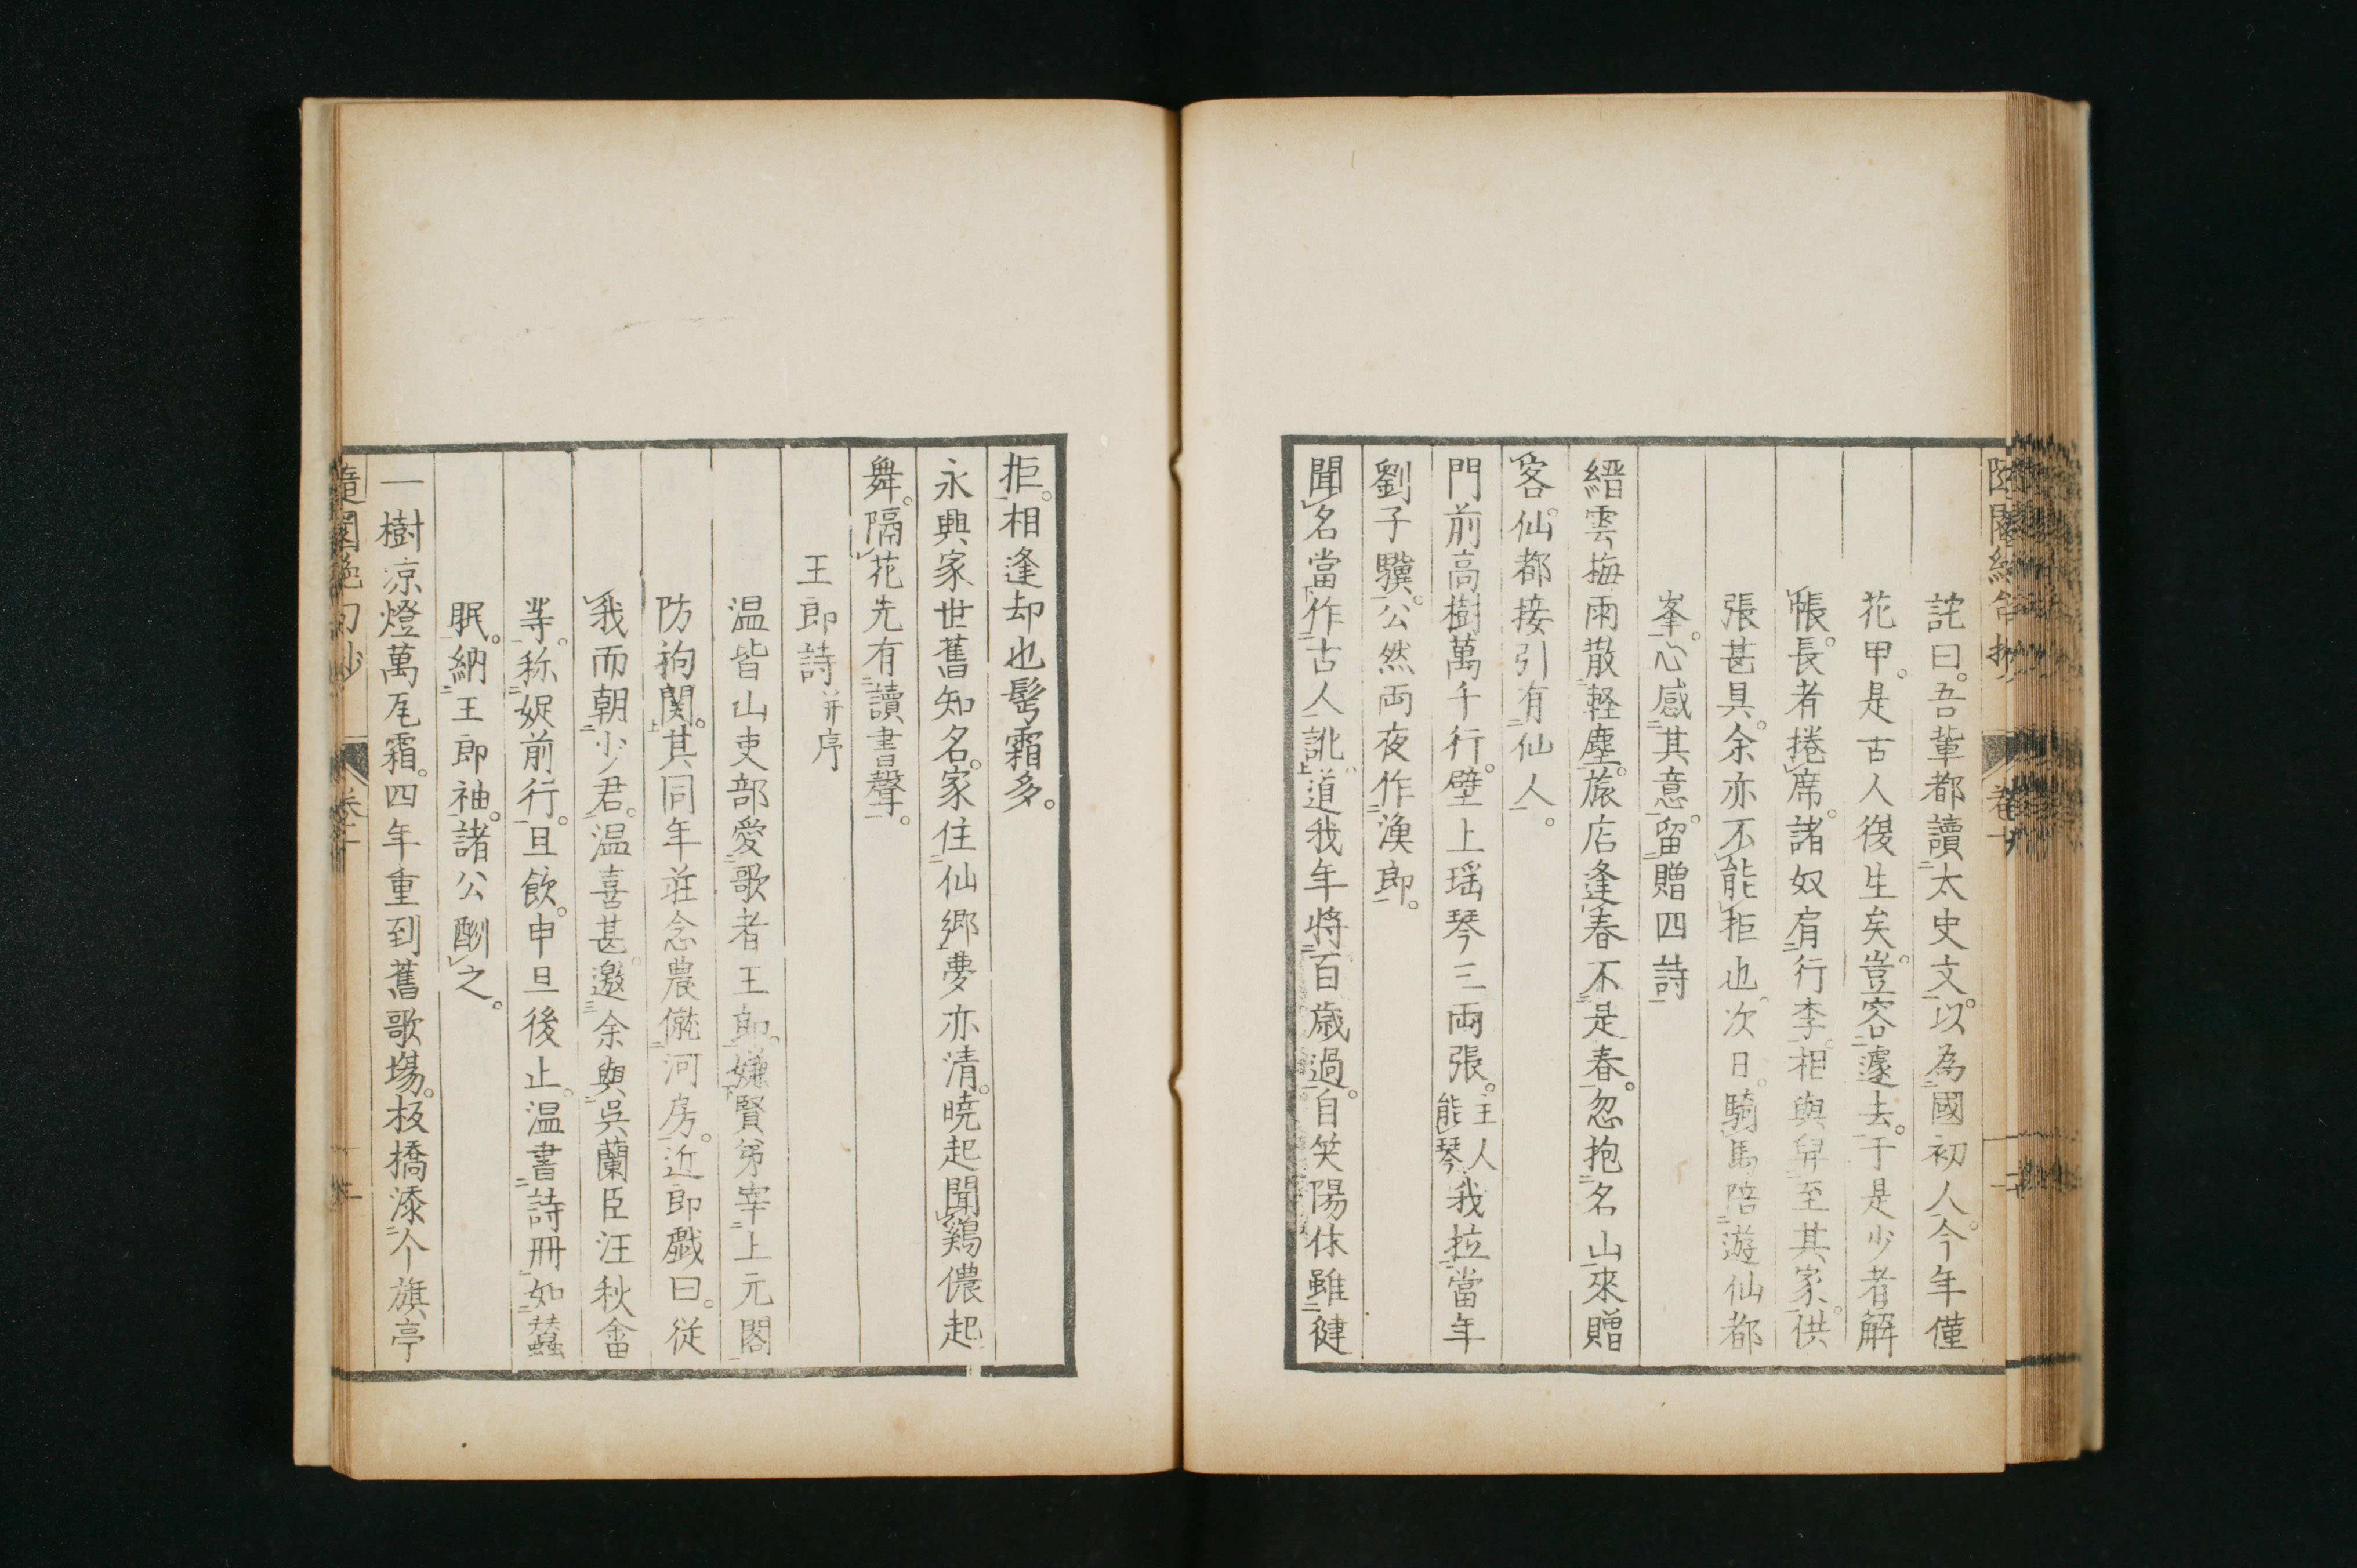 詫曰。吾輩都讀太史文。以為國初人。今年僅
花甲。是古人復生矣。豈容遽去。于是少者解
帳。長者捲席。諸奴肩行李。相與舁至其家。供
張甚具。余亦不能拒也。次日。騎馬陪遊仙都
峯。心感其意。留贈四詩
縉雲梅雨散軽塵。旅店逢春不是春。忽抱名山來贈
客。仙都接引有仙人。
門前高樹萬千行。壁上瑶琴三両張。主人能琴我拉當年
劉子驥。公然両夜作漁郎。
聞名當作古人訛。道我年將百歳過。自笑陽休雖健
拒。相逢却也髩霜多。
永興家世舊知名。家住仙郷夢亦清。暁起聞鷄儂起
舞。隔花先有讀書聲。
王郎詩并序
温皆山吏部愛歌者王郎。嫌賢弟宰上元閣
防徇関。其同年荘念農僦河房。近郎戯曰。従
我而朝少君。温喜甚。邀余與呉蘭臣汪秋畬
等。称娖前行。旦飲。申旦後止。温書詩冊如蠶
眠。納王郎袖。諸公酬之。
一樹凉燈萬瓦霜。四年重到舊歌場。板橋添个旗亭
隨園絶句抄 卷二